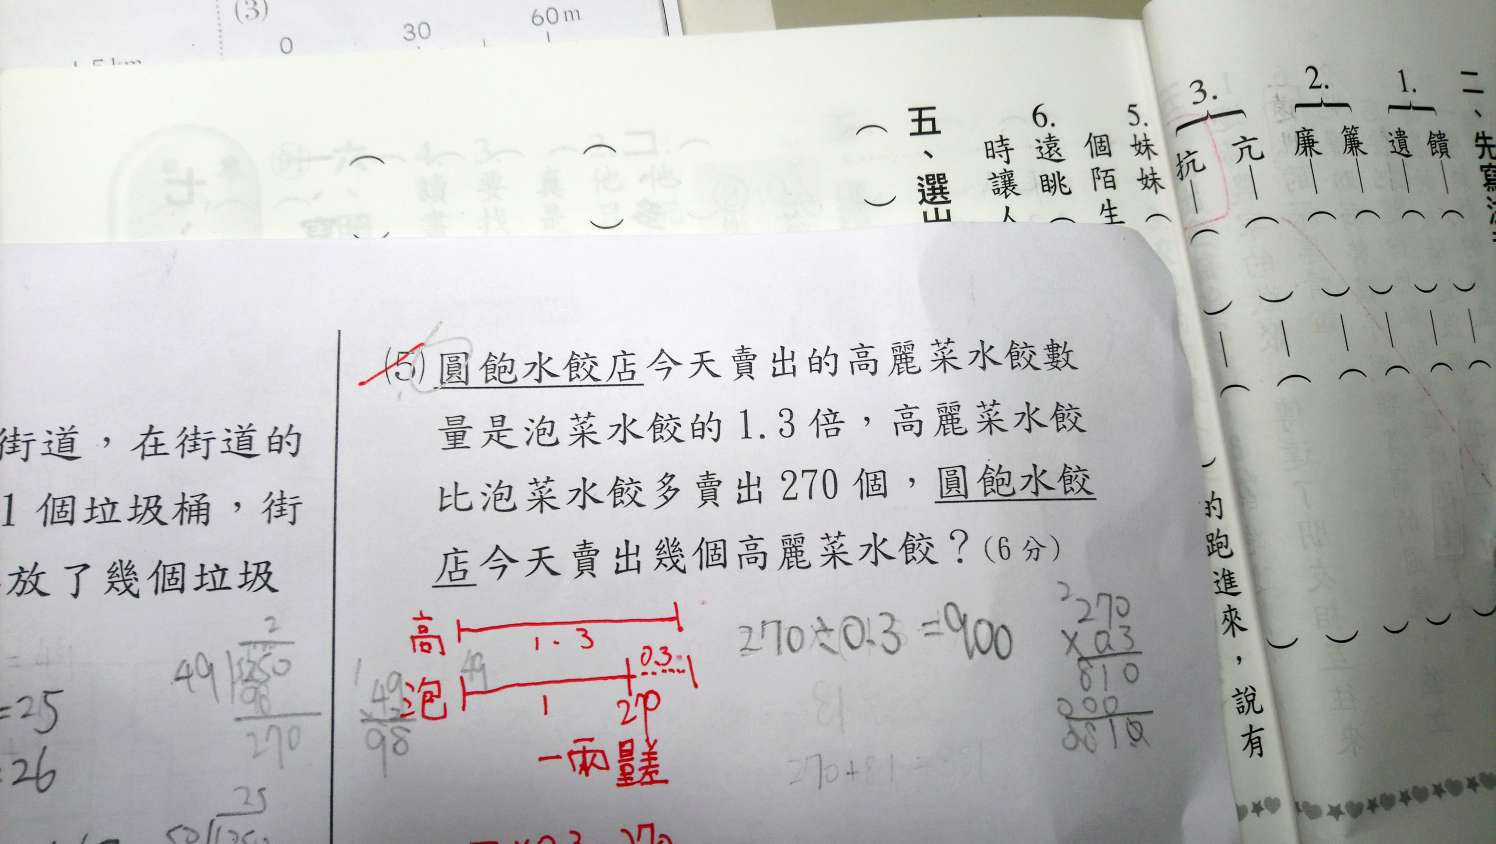 (3)
0
30
60m
二、先寫
1.
饋
遺
2.
簾
廉
3.
亢
抗
5.
妹妹
個陌生
6.
遠眺
時讓人
五、選出
的跑進來,說有
街道,在街道的
1個垃圾桶,街
放了幾個垃圾
=25
=26
2
49
98
270
49
98
25
(5)圓飽水餃店今天賣出的高麗菜水餃數
量是泡菜水餃的1.3倍,高麗菜水餃
比泡菜水餃多賣出270個,圓飽水餃
店今天賣出幾個高麗菜水餃?(6分)
高
1.3
泡
49
1
0.3
270
一兩量差
270÷0.3=900
2
270
×0.3
810
000
0810
81